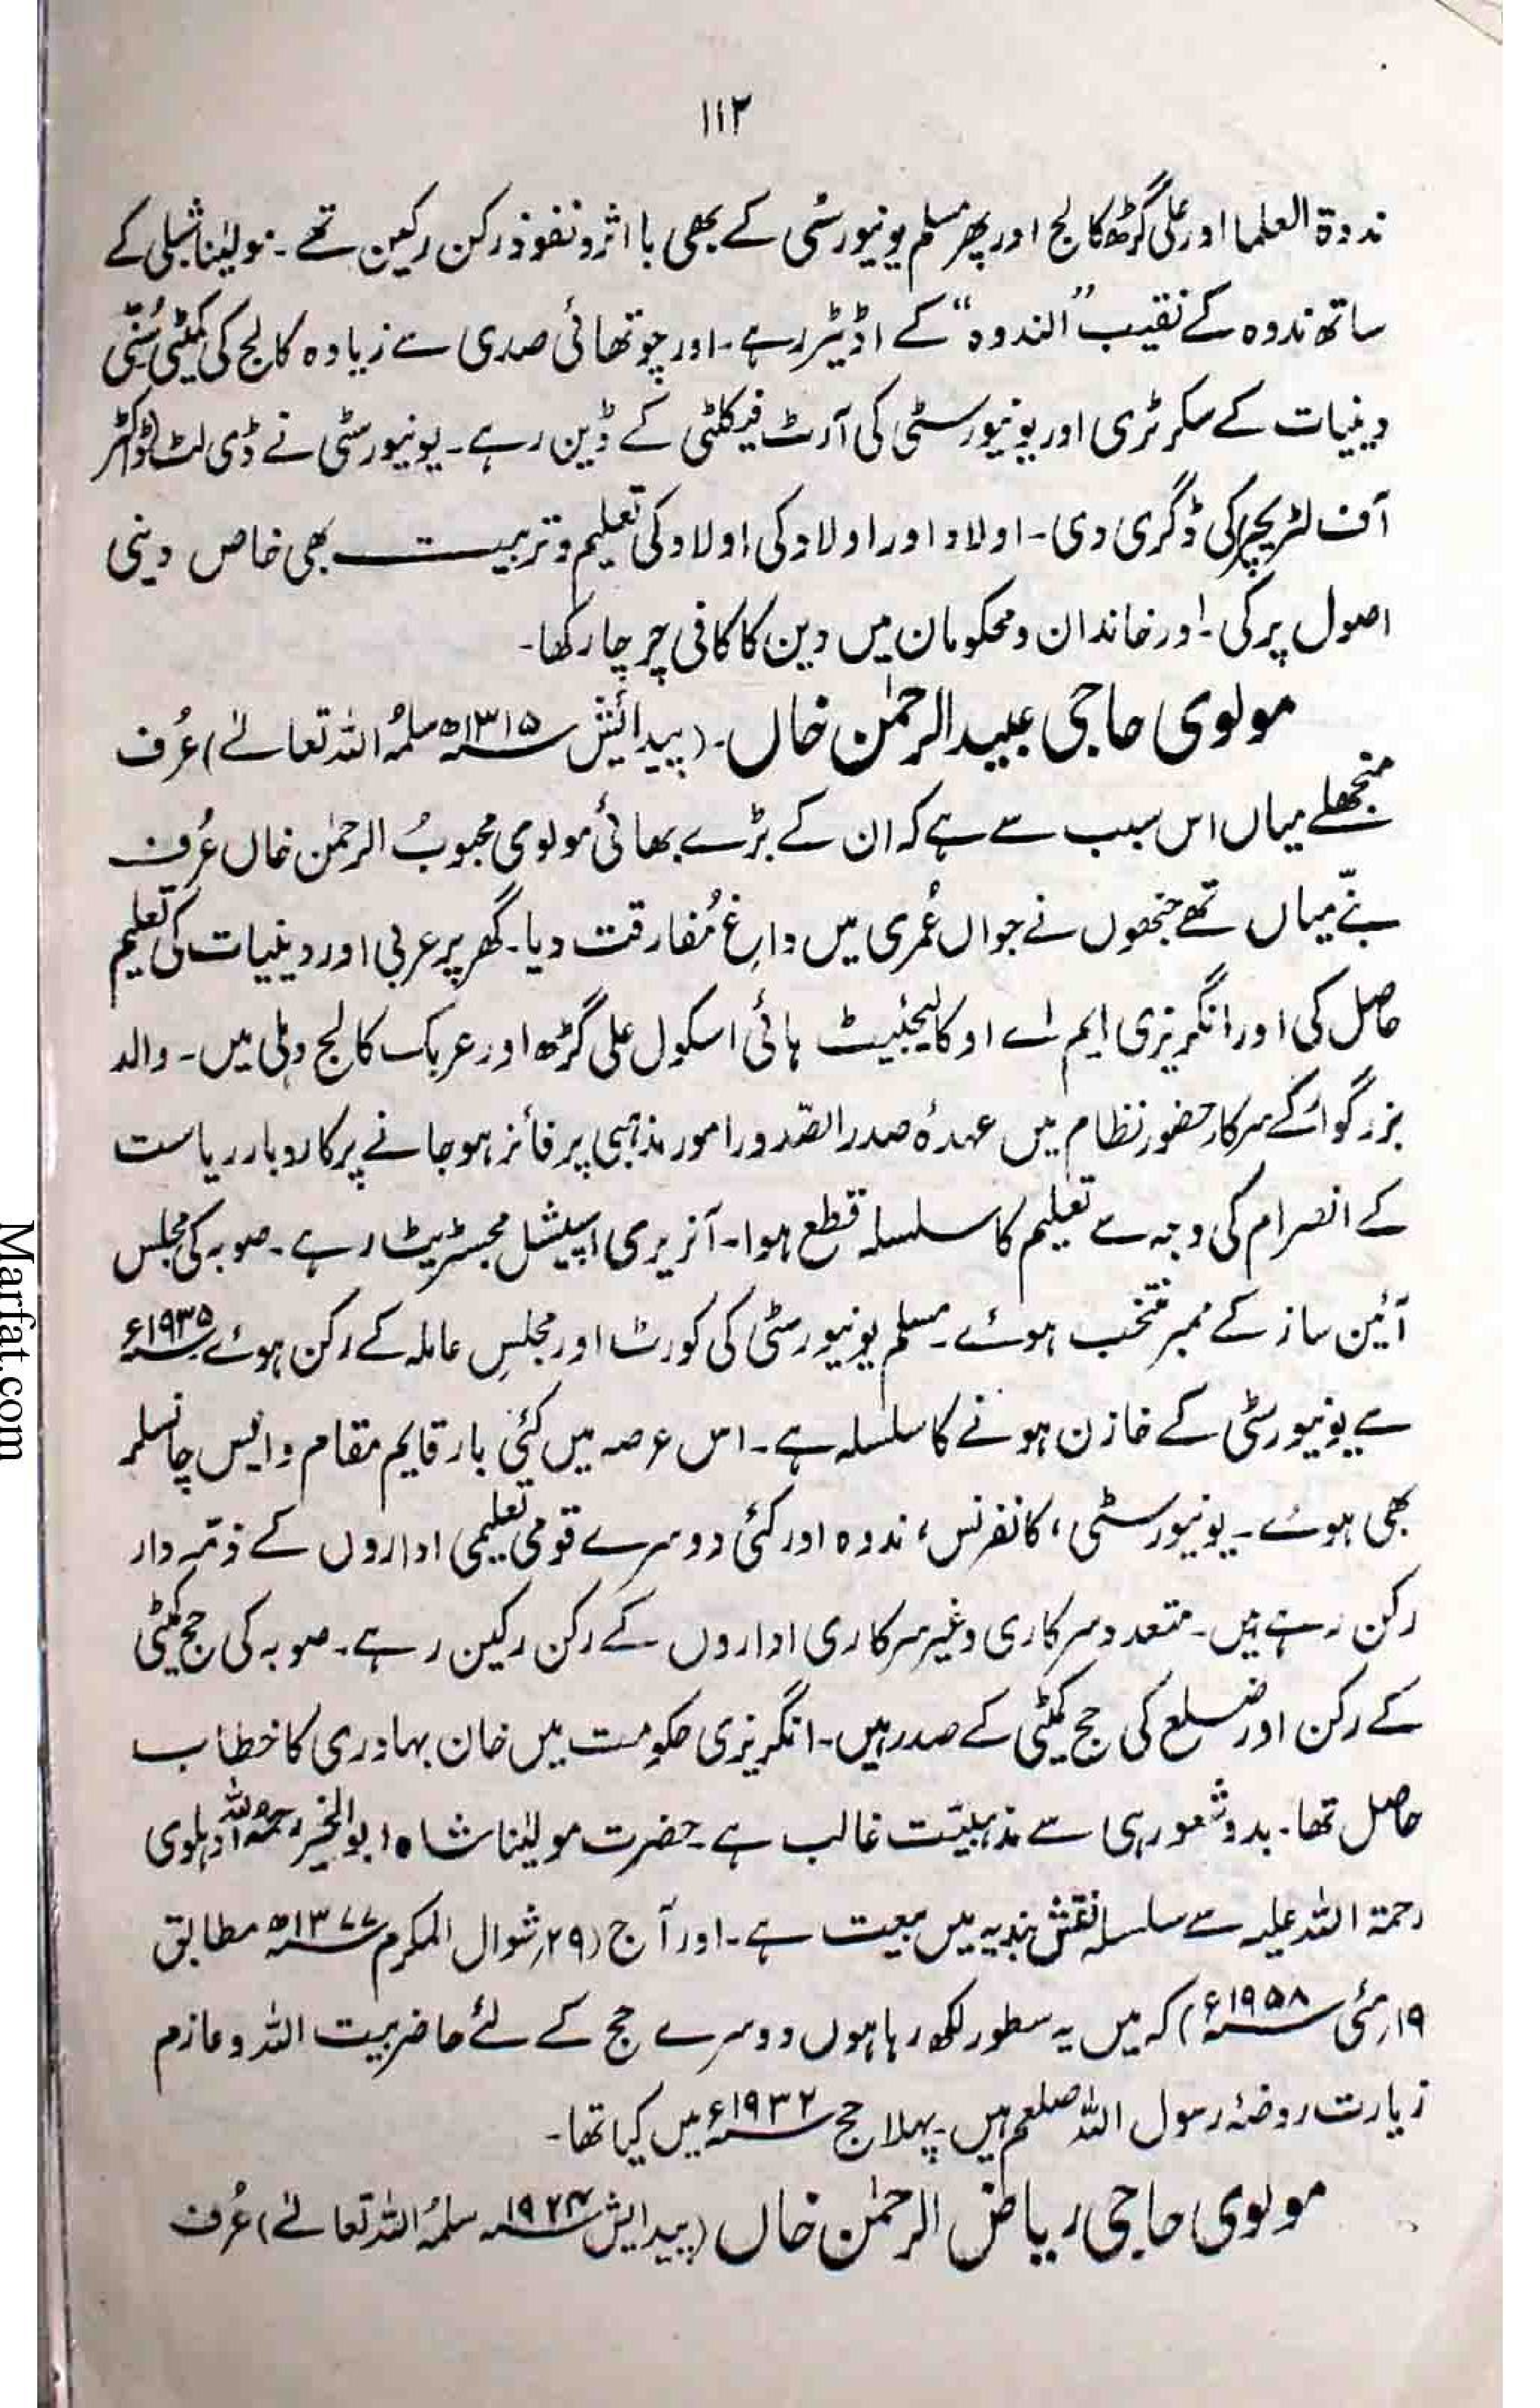 ۱۱۲
ندوۃ العلما اور علی گڑھ کالج اور پھر مسلم یونیورسٹی کے بھی با اثر و نفوذ رکن رکین تھے۔ مولیٰنا شبلی کے
ساتھ ندوہ کے نقیب "الندوہ" کے اڈیٹر رہے۔ اور چوتھائی صدی سے زیادہ کالج کی کمیٹی سُنّی
دینیات کے سکرٹری اور یونیورسٹی کی آرٹ فیکلٹی کے ڈین رہے۔ یونیورسٹی نے ڈی لٹ (ڈاکٹر
آف لٹریچر) کی ڈگری دی۔ اولاد اور اولاد کی اولاد کی تعلیم و تربیت بھی خاص دینی
اصول پر کی۔ اور خاندان و محکومان میں دین کا کافی چرچا رکھا۔
مولوی حاجی عبید الرحمٰن خاں۔ (پیدائش ۱۳۱۵ھ سلمہُ اللہ تعالےٰ) عُرف
منجھلے میاں اس سبب سے ہے کہ ان کے بڑے بھائی مولوی محبوبُ الرحمٰن خاں عُرف
بنّے میاں تھے جنھوں نے جواں عُمری میں داغِ مُفارقت دیا۔ گھر پر عربی اور دینیات کی تعلیم
حاصل کی اور انگریزی ایم اے او کالیجئیٹ ہائی اسکول علی گڑھ اور عربک کالج دہلی میں۔ والد
بزرگوار کے سرکار حضور نظام میں عہدۂ صدر الصّدور امور مذہبی پر فائز ہو جانے پر کاروبار ریاست
کے انصرام کی وجہ سے تعلیم کا سلسلہ قطع ہوا۔ آنریری اسپیشل مجسٹریٹ رہے۔ صوبہ کی مجلس
آئین ساز کے ممبر منتخب ہوئے۔ مسلم یونیورسٹی کی کورٹ اور مجلسِ عاملہ کے رکن ہوئے ۱۹۳۵ء
سے یونیورسٹی کے خازن ہونے کا سلسلہ ہے۔ اس عرصہ میں کئی بار قایم مقام وایس چانسلر
بھی ہوئے۔ یونیورسٹی، کانفرنس، ندوہ اور کئی دوسرے قومی تعلیمی اداروں کے ذمّہ دار
رکن رہے ہیں۔ متعدد سرکاری و غیر سرکاری اداروں کے رکن رکین رہے۔ صوبہ کی حج کمیٹی
کے رکن اور ضلع کی حج کمیٹی کے صدر ہیں۔ انگریزی حکومت میں خان بہادری کا خطاب
حاصل تھا۔ بدو شعور ہی سے مذہبیّت غالب ہے۔ حضرت مولیٰنا شاہ ابو الخیر رحمۃ اللہ دہلوی
رحمۃ اللہ علیہ سے سلسلہ نقش بندیہ میں بیعت ہے۔ اور آج (۲۹ر شوال المکرم ۱۳۷۷ھ مطابق
۱۹ر مئی ۱۹۵۸ء) کہ میں یہ سطور لکھ رہا ہوں دوسرے حج کے لئے حاضر بیت اللہ و عازم
زیارت روضۂ رسول اللہ صلعم ہیں۔ پہلا حج ۱۹۳۲ء میں کیا تھا۔
مولوی حاجی ریاض الرحمٰن خاں (پیدایش سلمہُ اللہ تعالےٰ) عُرف
Marfat.com